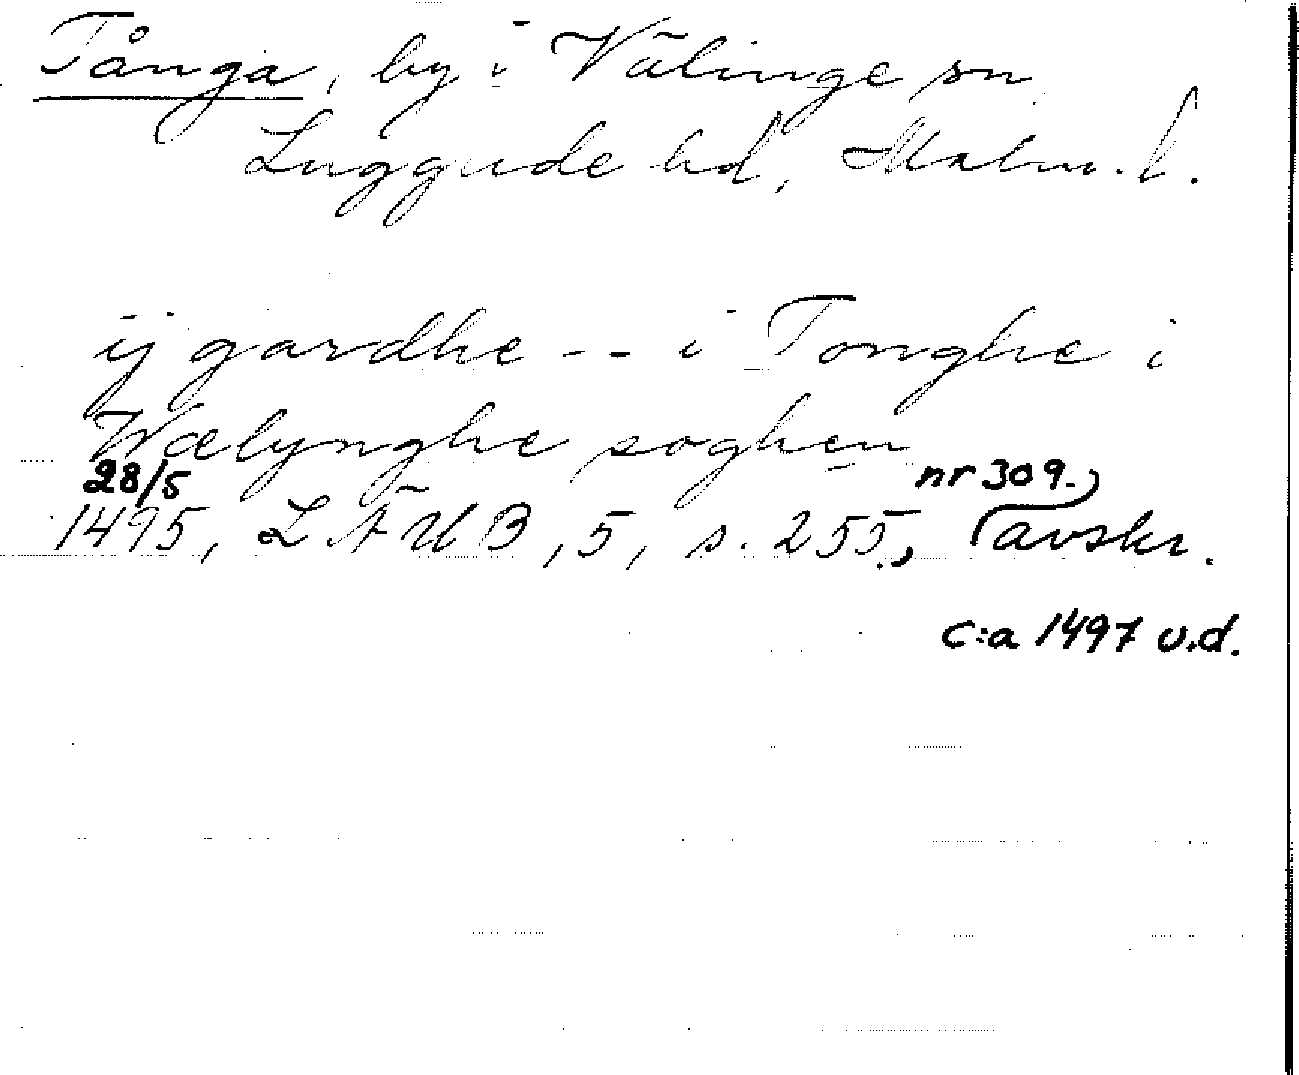 Tånga, by i Välinge sn
Luggude hd, Malm. l.
ij gardhe -- i Tonghe i
Wælynghe soghen
28/5 nr 309.
1495, LÄUB, 5, s. 255., avskr.
c:a 1497 u.d.